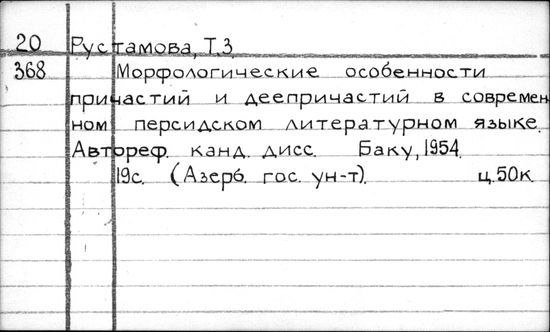 20 Рустамова, Т.З.
368 Морфологические особенности
причастий и деепричастий в современ
ном персидском литературном языке.
Автореф. канд. дисс. Баку, 1954.
19с. (Азерб. гос. ун-т). ц. 50к.